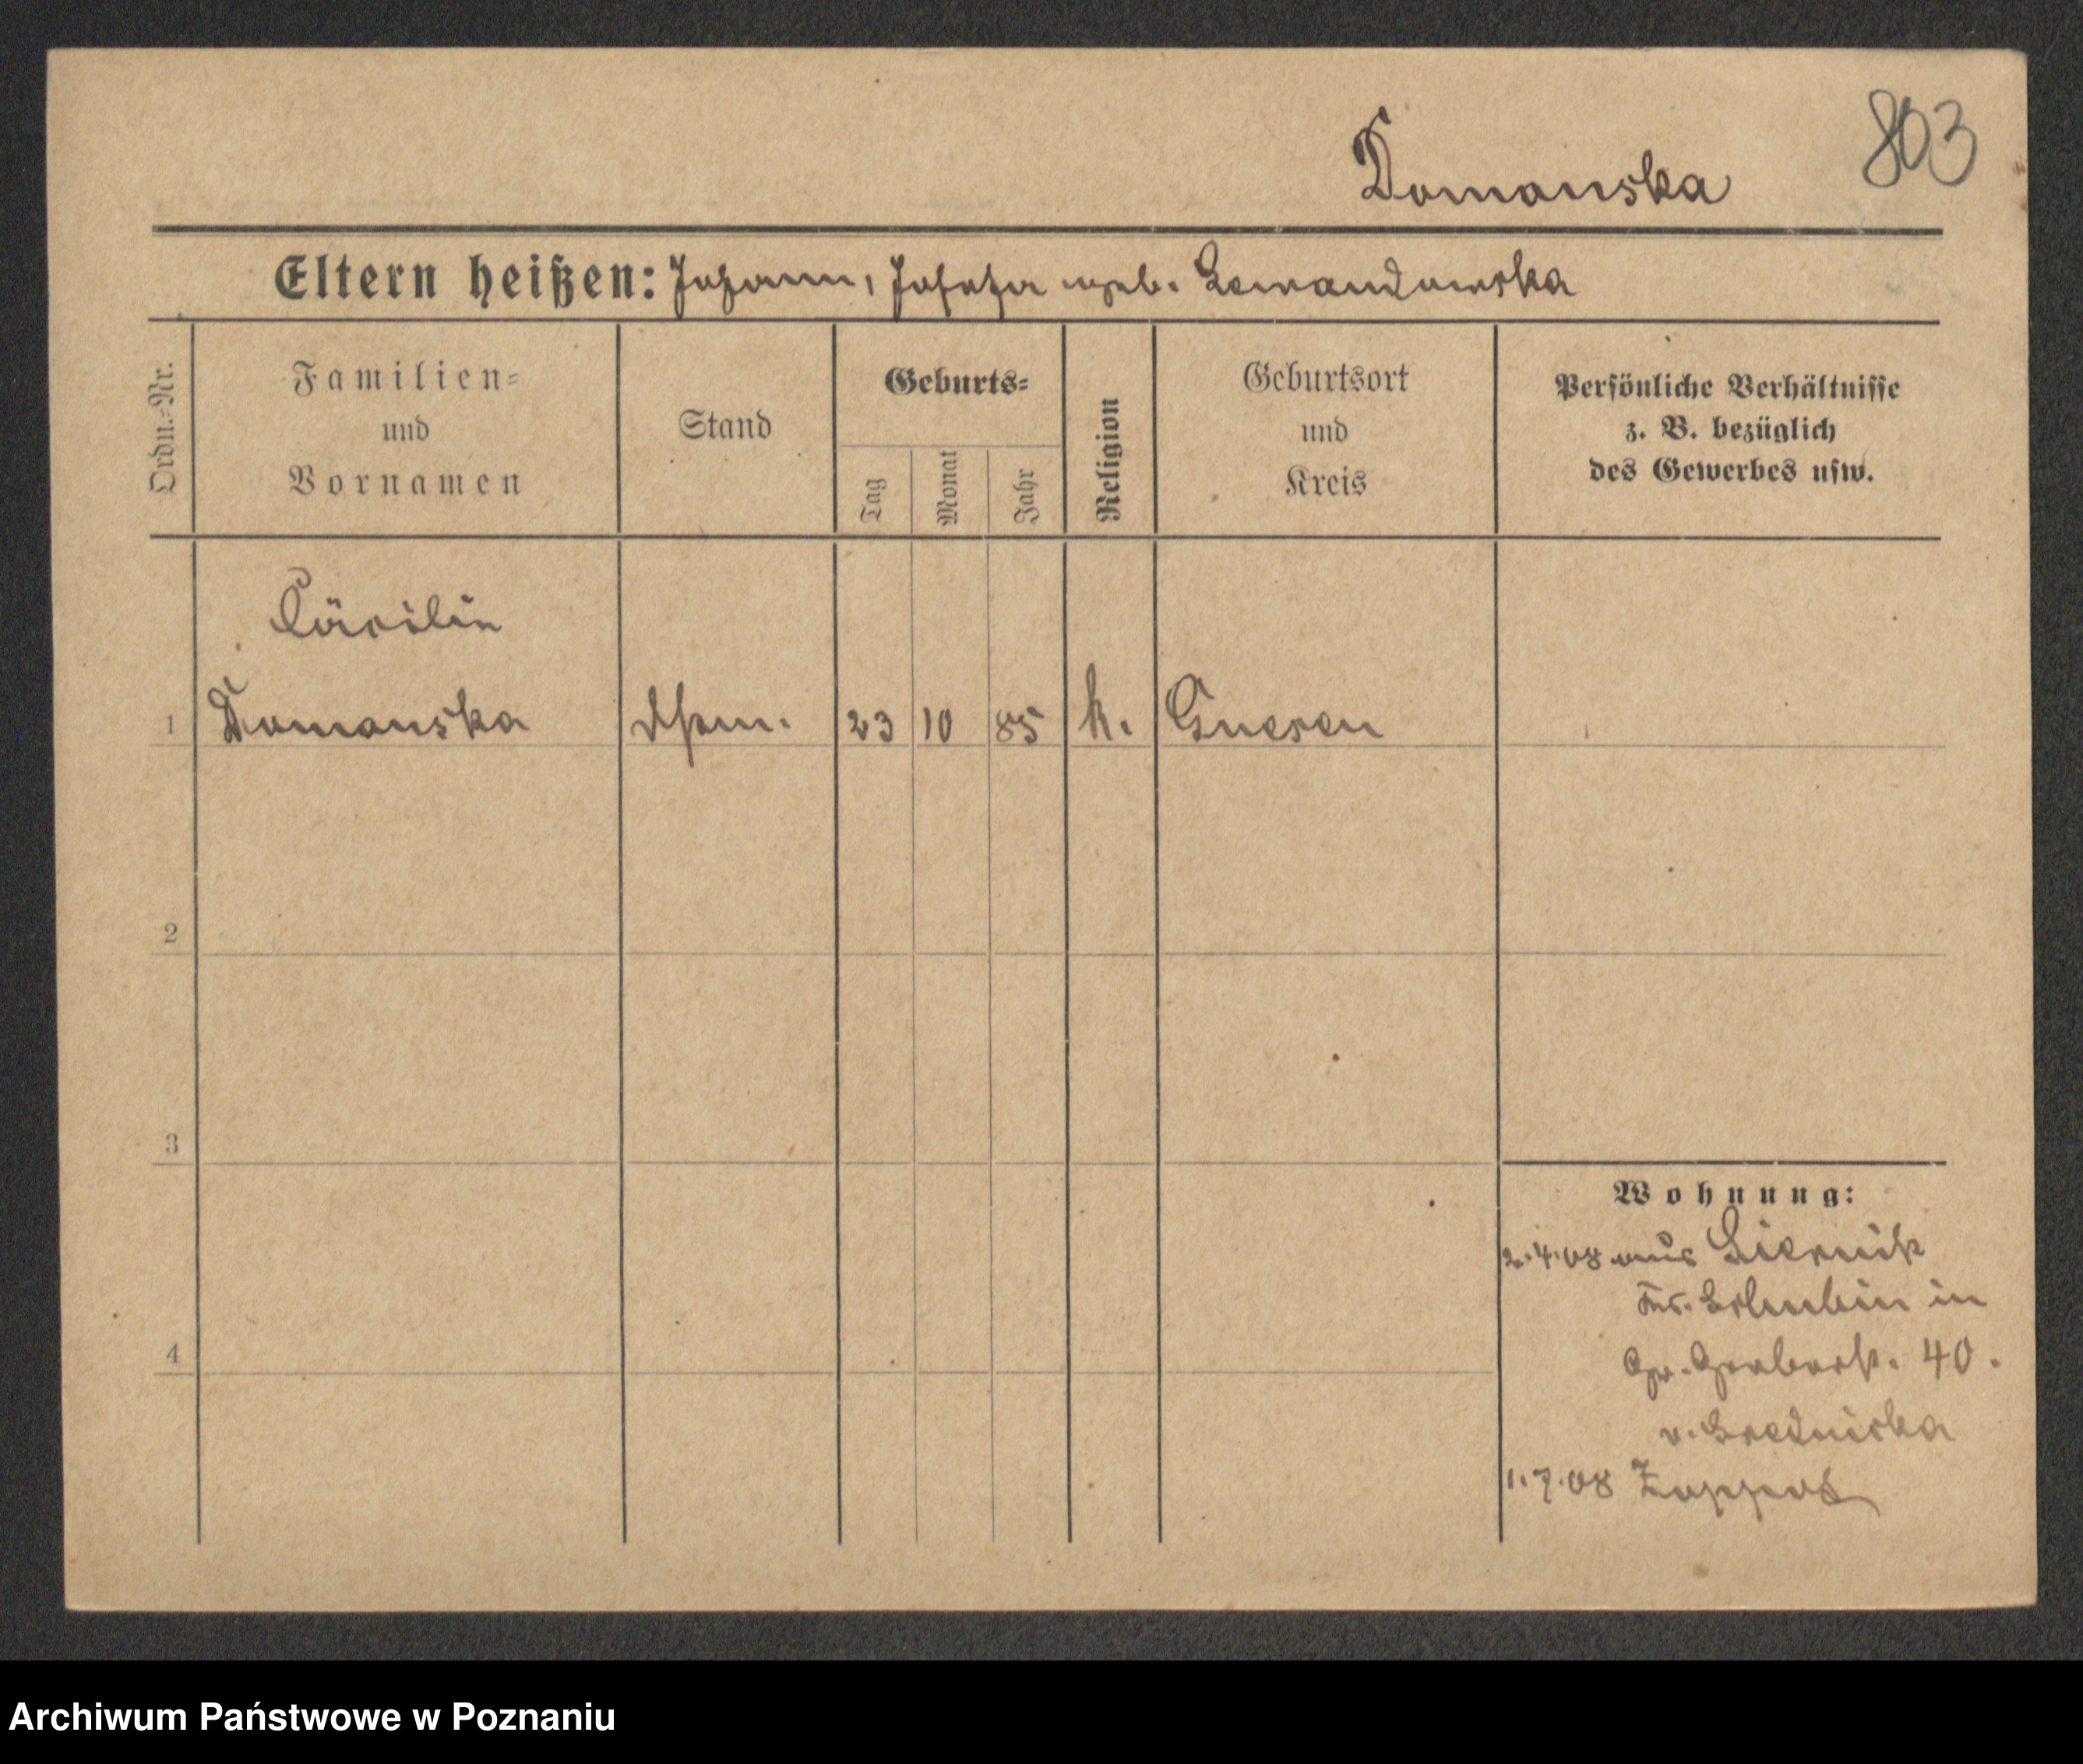 803
Domanska
Eltern heißen: Johann, Josefa geb. Lewandowska
Ordn.-Nr.
Familien-
und
Vornamen
Stand
Geburts-
Tag
Monat
Jahr
Religion
Geburtsort
und
Kreis
Persönliche Verhältnisse
z. B. bezüglich
des Gewerbes usw.
Cäcilie
1 Domanska 23 10 85 k. Gnesen
2
3
4
Wohnung:
2.4.08 aus
Kr. Schubin in
Gr. Gerberst. 40.
v. Srednicka
1.7.08 Zoppot
Archiwum Państwowe w Poznaniu